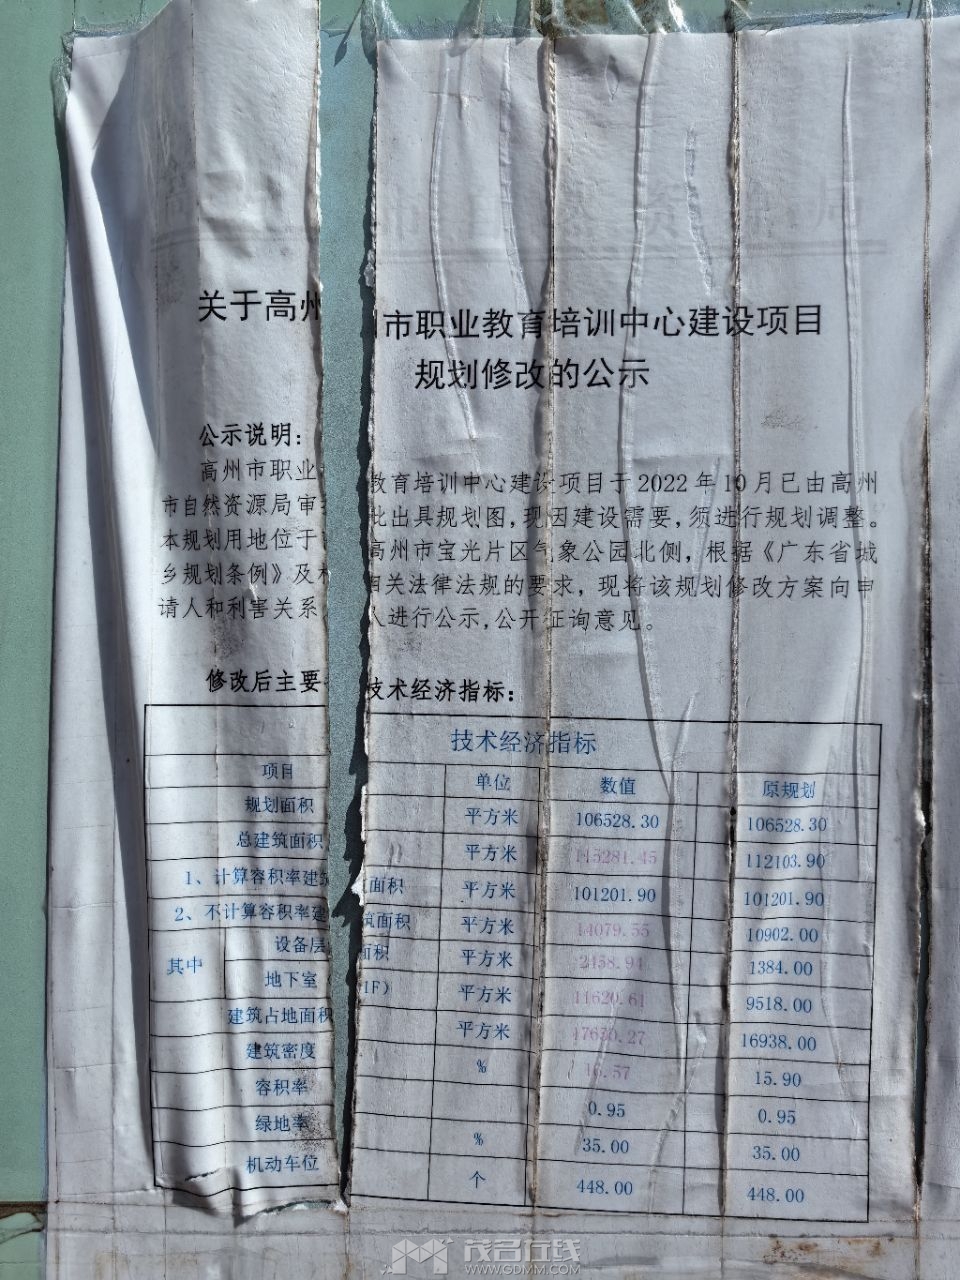 关于高州市职业教育培训中心建设项目
规划修改的公示
公示说明：
高州市职业教育培训中心建设项目于2022年10月已由高州
市自然资源局审批出具规划图，现因建设需要，须进行规划调整。
本规划用地位于高州市宝光片区气象公园北侧，根据《广东省城
乡规划条例》及相关法律法规的要求，现将该规划修改方案向申
请人和利害关系人进行公示，公开征询意见。
修改后主要技术经济指标：
技术经济指标
项目 单位 数值 原规划
规划面积 平方米 106528.30 106528.30
总建筑面积 平方米 115281.45 112103.90
1、计算容积率建筑面积 平方米 101201.90 101201.90
2、不计算容积率建筑面积 平方米 14079.55 10902.00
其中 设备层面积 平方米 2458.94 1384.00
地下室 1F） 平方米 11620.61 9518.00
建筑占地面积 平方米 17650.27 16938.00
建筑密度 % 16.57 15.90
容积率 0.95 0.95
绿地率 % 35.00 35.00
机动车位 个 448.00 448.00
茂名在线
WWW.GDMM.COM